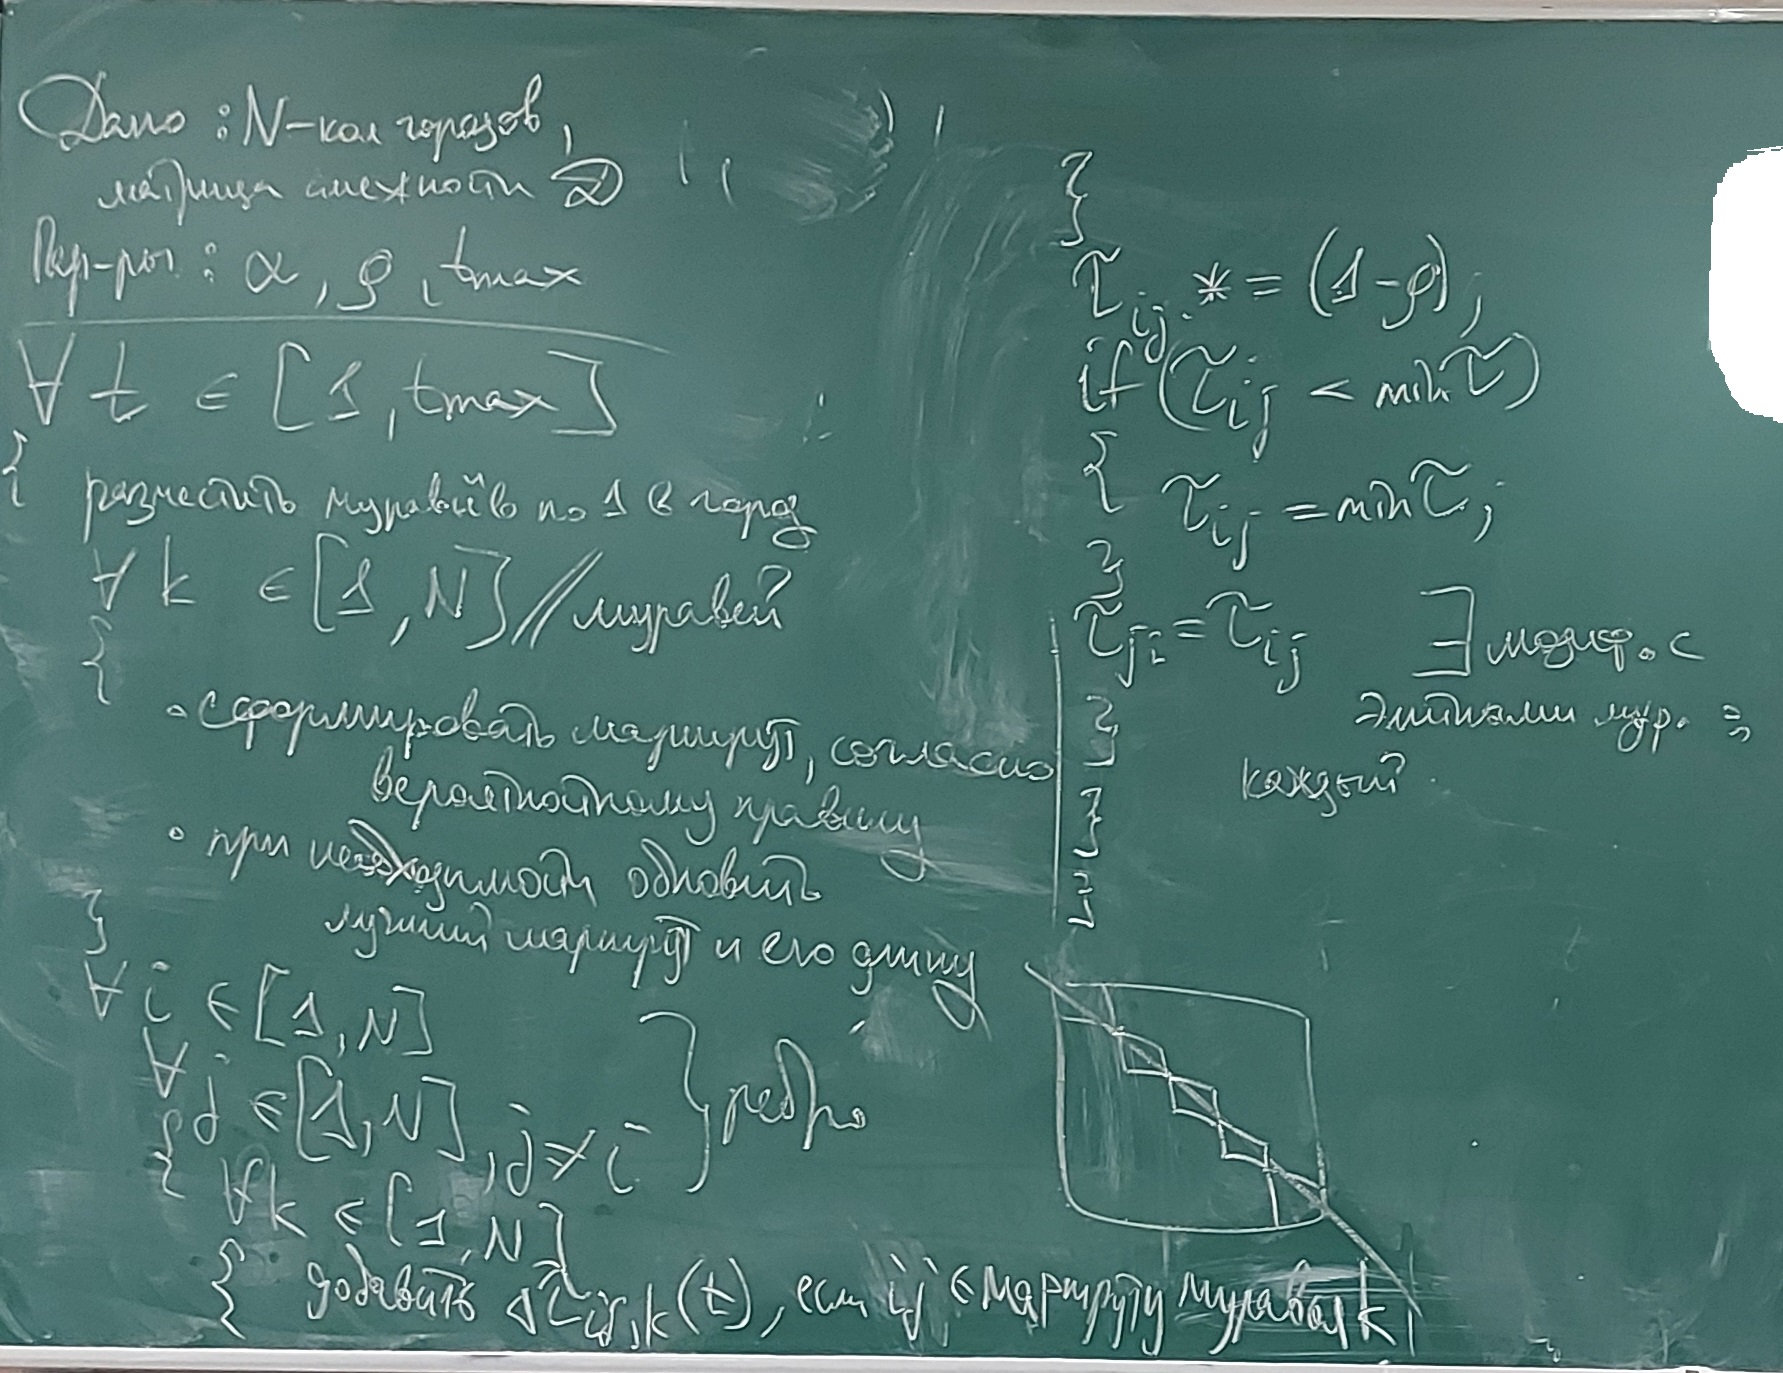 Дано : N-кол городов,
матрица смежности D
Пар-ры : α, ρ, tmax
∀ t ∈ [1, tmax]
{ разместить муравьёв по 1 в город
∀ k ∈ [1, N] // муравей
{
• сформировать маршрут, согласно
вероятностному правилу
• при необходимости обновить
лучший маршрут и его длину
}
∀ i ∈ [1, N]
∀ j ∈ [1, N], j ≠ i } ребро
{ ∀k ∈ [1, N]
{ добавить Δτij,k(t), если ij ∈ маршруту муравья k
}
τij *= (1-ρ);
if (τij < minτ)
{ τij = minτ;
}
τji = τij
}
}
∃ модиф. с
элитными мур.
каждый